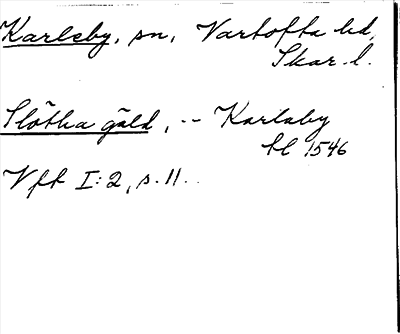 Karleby, sn, Vartofta hd,
Skar. l.
Slötha gäld, -- Karlaby
hl 1546
Vft I:2, s. 11.